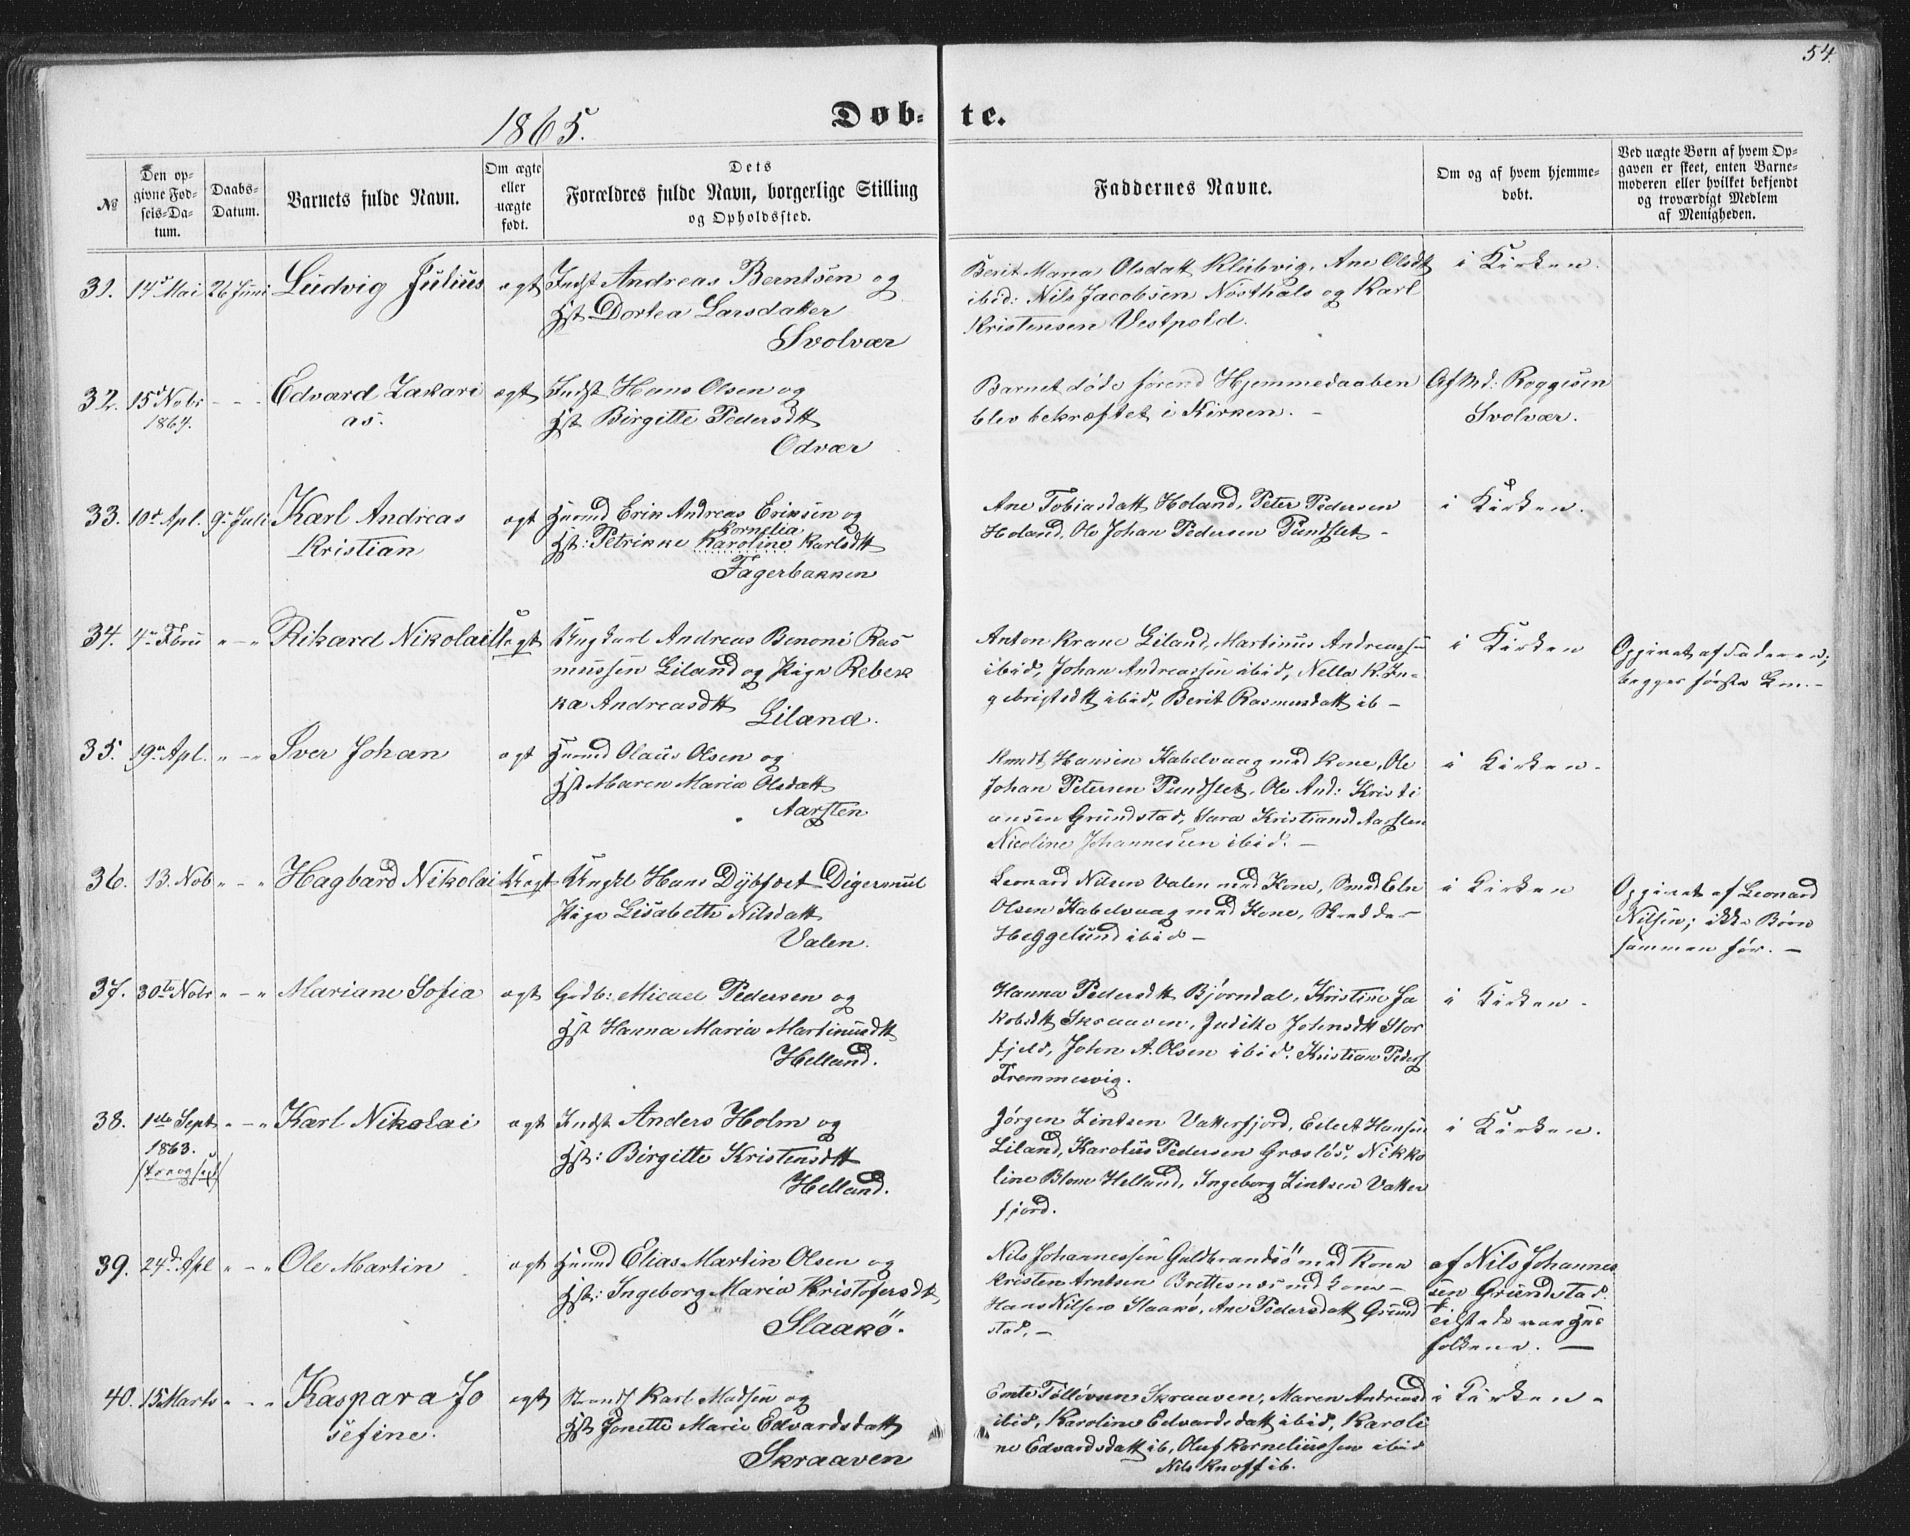 54.
1865.
Døb- te.
№
Den opgivne Fødsels-Datum.
Daabs-Datum.
Barnets fulde Navn.
Om ægte eller uægte født.
Dets Forældres fulde Navn, borgerlige Stilling og Opholdssted.
Faddernes Navne.
Om og af hvem hjemmedøbt.
Ved uægte Børn af hvem Opgaven er skeet, enten Barnemoderen eller hvilket bekjendt og troværdigt Medlem af Menigheden.
31. 14d Mai 26 Juni Ludvig Julius ægt Indst Andreas Berntsen og
Hst Dortea Larsdatter
Svolvær
Berit Maria Olsdatt Kleibvig, Ane Olsdt
ibid: Nils Jacobsen Nøsthals og Karl
Kristensen Vestpold.
i Kirken.
32. 15d Nobr - - - Edvard Zakari ægt Indst Hans Olsen og
1864. as. Hst Birgitte Pedersdt
Odvær
Barnet døde førend Hjemmedaaben
blev bekræftet i Kirken. -
Af Md: Roggesen
Svolvær.
33. 10d Apl. 9d Juli Karl Andreas ægt Huusmd Erik Andreas Eriksen og
Kornelia
Kristian Hst: Petrikke Karoline Karlsdt
Fagerbakken
Ane Tobiasdatt Holand, Peter Pedersen
Holand, Ole Johan Pedersen Pundslet -
i Kirken.
34. 4de Febru " - " Rikard Nikolai Uægt Ungkarl Andreas Benoni Ras
mussen Liland og Pige Rebek
ka Andreasdtt Liland.
Anton Krane Liland, Martinus Andreass
ibid, Johan Andreassen ibid, Nella K. In-
gebrigtsdt ibid, Berit Rasmusdatt ib -
i Kirken
Opgivet af Faderen;
begges første Lm. -
35. 19de Apl. " - " Iver Johan ægt Huusmd Olaus Olsen og
Hst Maren Maria Olsdatt
Aarsten
Knudt Hansen Kabelvaag med Kone, Ole
Johan Petersen Pundslet, Ole And: Kristi
ansen Grundstad, Sara Kristiansd Aarsten
Nicoline Johannessen ibid. -
i Kirken.
36. 13. Nob " - " Hagbard Nikolai Uægt Ungkl Hans Dybfæst Digermul
Pige Lisabeth Nilsdatt
Valen.
Leonard Nilsen Valen med Kone, Smed Eln
Olsen Kabelvaag med Kone, Skredder
Heggelund ibid -
i Kirken
Opgivet af Leonard
Nilsen; ikke Børn
sammen før. -
37. 30te Nobr " - " Mariane Sofia ægt Gdb: Micael Pedersen og
Hst Hanna Maria Martinusdt
Helland.
Hanna Pedersdt Bjørndal, Kristine Ja
kobsdt Skraaven, Juditte Johnsdt Stor
fjeld, John A. Olsen ibid, Kristian Peders
Tremmesvig.
i Kirken.
38. 1ste Sept " - " Karl Nikolai ægt Indst Anders Holm og
1863. Hst: Birgitte Kristensdt
Helland.
Jørgen Zintsen Vatterfjord, Eilert Hansen
Liland, Karolius Pedersen Græsløs, Nikko
line Blom Helland, Ingeborg Zintsen Vatter
fjord.
i Kirken.
39. 24d Apl " - " Ole Martin ægt Huusmd Elias Martin Olsen og
Hst: Ingeborg Maria Kristofersdt
Slaakø.
Nils Johannessen Guldbrandsø med Kone
Kristen Arntsen Brettesnes med Kone -
Hans Nilsen Slaakø, Ane Pedersdatt Grund
stad, -
af Nils Johannes
sen Grundstad.
tilstede var Hus
folkene. -
40. 15 Marts " - " Kaspara Jo ægt Strands Karl Madsen og
sefine. Hst Jonette Marie Edvardsdatt
Skraaven
Ente Tolløvun Skraaven, Maren Andreasd
ibid, Karoline Edvardsdatt ibid, Karoli
ne Edvardsdatt ib, Oluf Korneliussen ibid
Nils Knoff ib.
i Kirken.